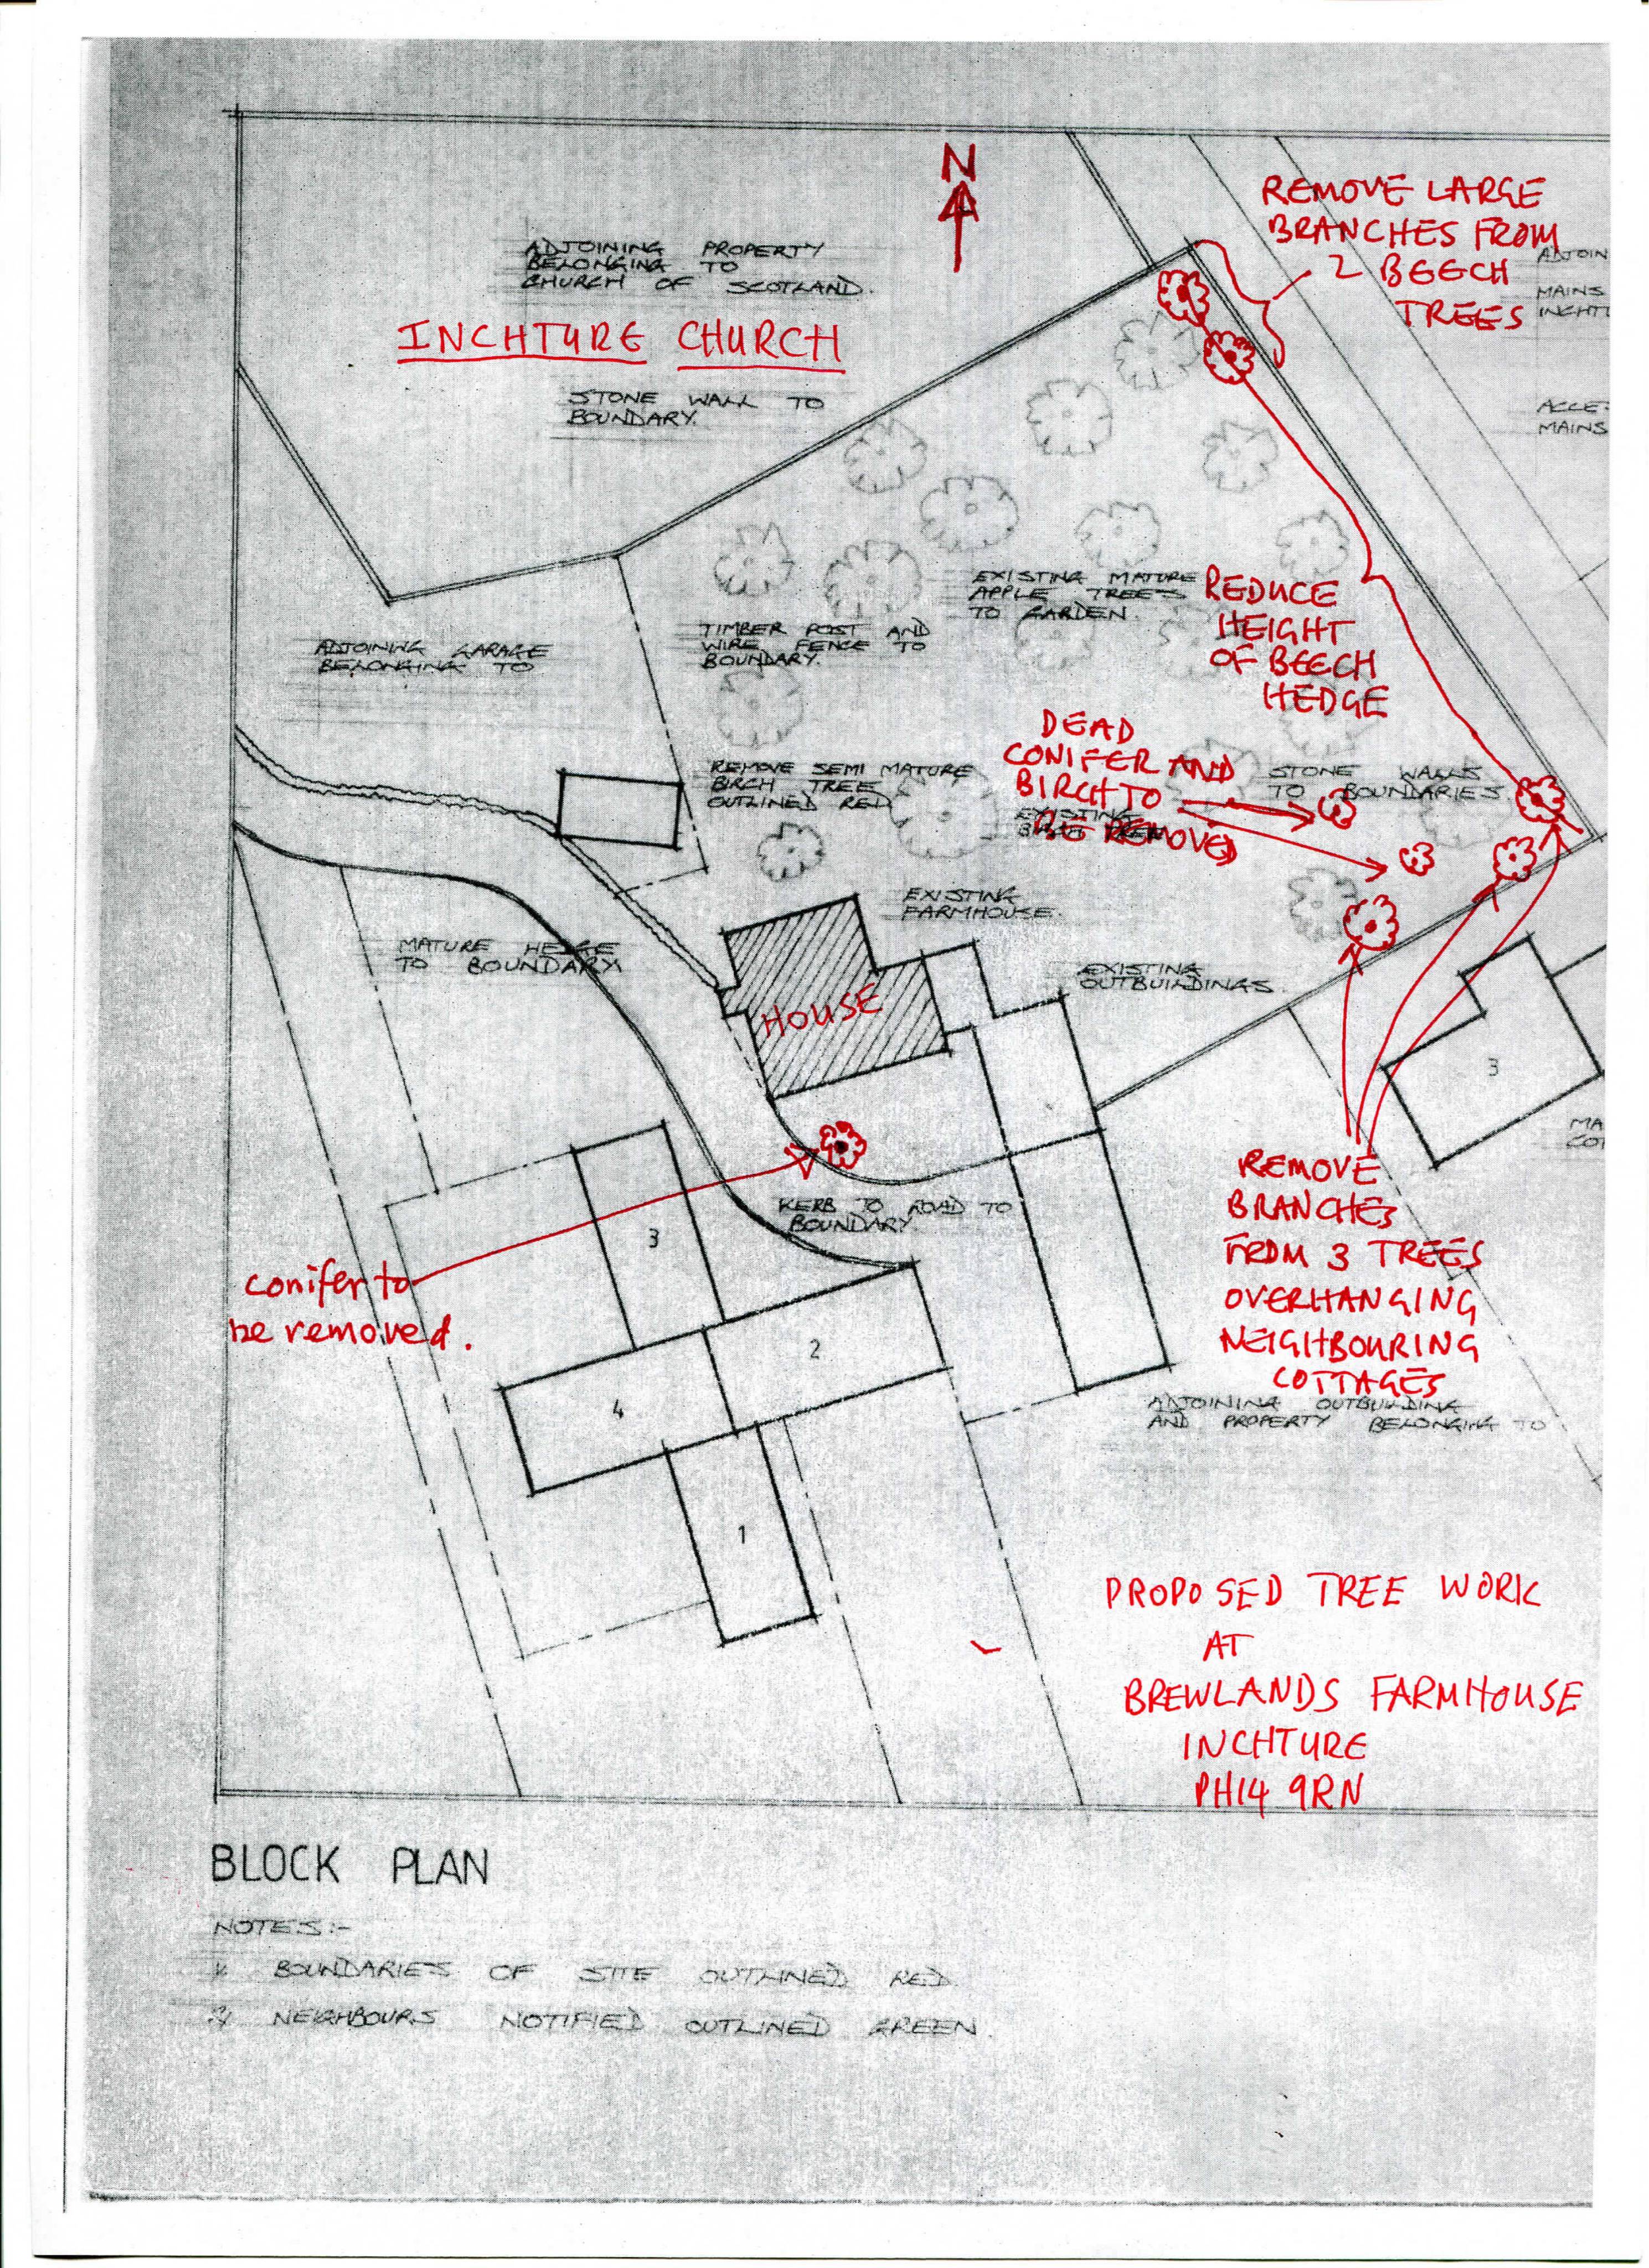 N
REMOVE LARGE
BRANCHES FROM
2 BEECH
TREES
ADJOIN
MAINS
INCHT
ADJOINING PROPERTY
BELONGING TO
CHURCH OF SCOTLAND.
INCHTURE CHURCH
STONE WALL TO
BOUNDARY.
ACCE
MAINS
EXISTING MATURE
APPLE TREES
TO GARDEN.
REDUCE
HEIGHT
OF BEECH
HEDGE
TIMBER POST AND
WIRE FENCE TO
BOUNDARY.
ADJOINING GARAGE
BELONGING TO
DEAD
CONIFER AND
BIRCH TO
BE REMOVED
STONE WALLS
TO BOUNDARIES.
REMOVE SEMI MATURE
BIRCH TREE
OUTLINED RED
EXISTING
EXISTING
FARMHOUSE.
MATURE HEDGE
TO BOUNDARY
HOUSE
EXISTING
OUTBUILDINGS.
3
MA
COT
REMOVE
BRANCHES
FROM 3 TREES
OVERHANGING
NEIGHBOURING
COTTAGES
KERB TO ROAD TO
BOUNDARY
3
conifer to
be removed.
2
4
1
ADJOINING OUTBUILDING
AND PROPERTY BELONGING TO
PROPOSED TREE WORK
AT
BREWLANDS FARMHOUSE
INCHTURE
PH14 9RN
BLOCK PLAN
NOTES:-
1/ BOUNDARIES OF SITE OUTLINED RED.
2/ NEIGHBOURS NOTIFIED OUTLINED GREEN.